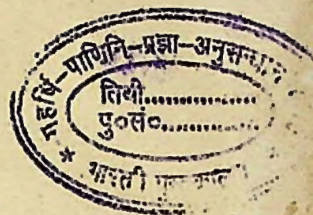 महर्षि-पाणिनि-प्रज्ञा-अनुसन्धान
तिथी...............
पु०सं०...............
*